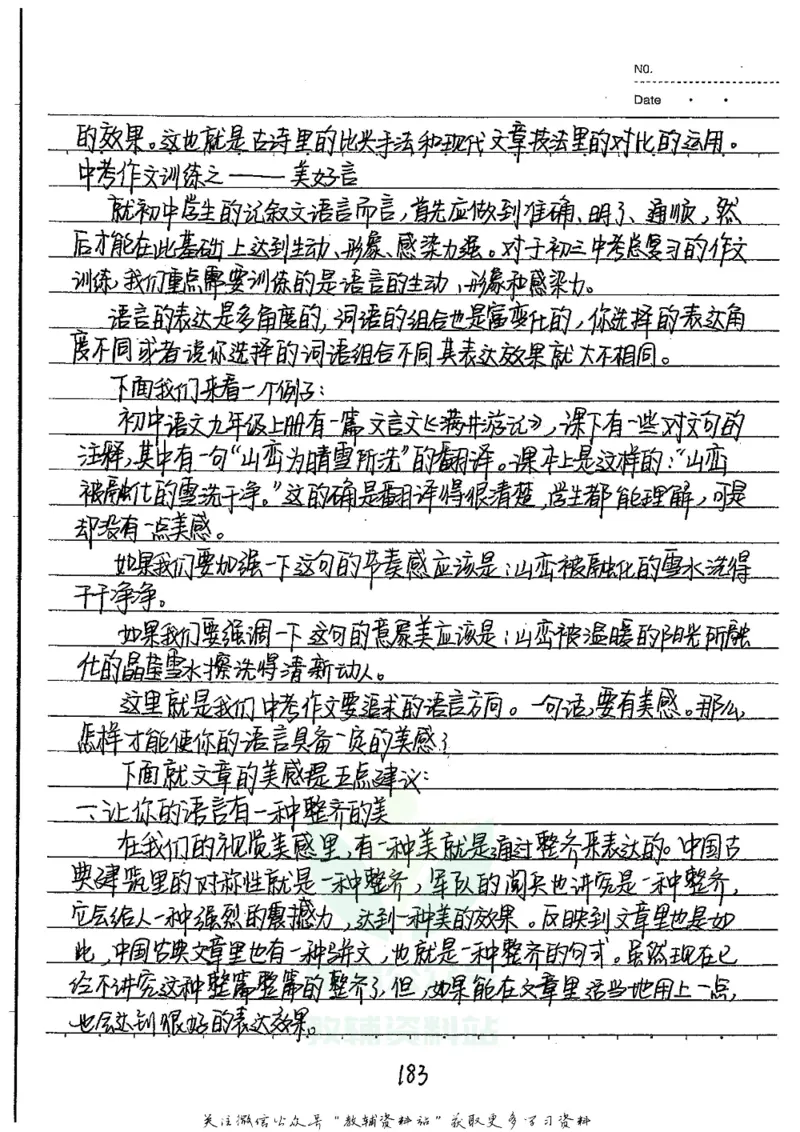 NO.
Date
的效果。这也就是古诗里的比兴手法和现代文章技法里的对比的运用。
中考作文训练之——美好言
就初中学生的记叙文语言而言,首先应做到准确、明了、通顺,然
后才能在此基础上达到生动、形象、感染力强。对于初三中考总复习的作文
训练,我们重点需要训练的是语言的生动、形象和感染力。
语言的表达是多角度的,词语的组合也是富变化的,你选择的表达角
度不同或者说你选择的词语组合不同其表达效果就大不相同。
下面我们来看一个例子:
初中语文九年级上册有一篇文言文《满井游记》,课下有一些对文句的
注释,其中有一句“山峦为晴雪所洗”的翻译。课本上是这样的:“山峦
被融化的雪洗干净。”这的确是翻译得很清楚,学生都能理解,可是
却没有一点美感。
如果我们要加强一下这句的节奏感应该是:山峦被融化的雪水洗得
干干净净。
如果我们要强调一下这句的意蕴美应该是:山峦被温暖的阳光所融
化的晶莹雪水擦洗得清新动人。
这里就是我们中考作文要追求的语言方向。一句话,要有美感。那么,
怎样才能使你的语言具备一定的美感?
下面就文章的美感提五点建议:
一、让你的语言有一种整齐的美
在我们的视觉美感里,有一种美就是通过整齐来表达的。中国古
典建筑里的对称性就是一种整齐,军队的阅兵也讲究是一种整齐,
它会给人一种强烈的震撼力,达到一种美的效果。反映到文章里也是如
此,中国古典文章里也有一种骈文,也就是一种整齐的句式。虽然现在已
经不讲究这种整篇整篇的整齐了,但,如果能在文章里适当地用上一点,
也会达到很好的表达效果。
教辅资料站
183
关注微信公众号“教辅资料站”获取更多学习资料